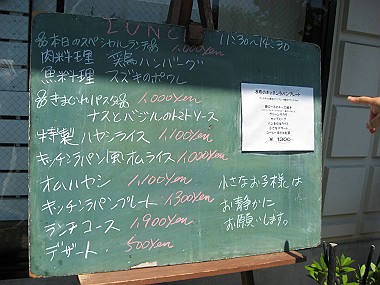 LUNCH
11:30〜14:30
本日のスペシャルランチ 1,000yen
肉料理 鶏ハンバーグ
魚料理 スズキのポワレ
きまぐれパスタ 1,000yen
ナスとバジルのトマトソース
特製ハヤシライス 1,100yen
キッチンラパン風オムライス 1,000yen
オムハヤシ 1,100yen
キッチンラパンプレート 1,300yen
ランチコース 1,900yen
デザート 500yen
小さなお子様は
お静かに
お願いします。
¥1300